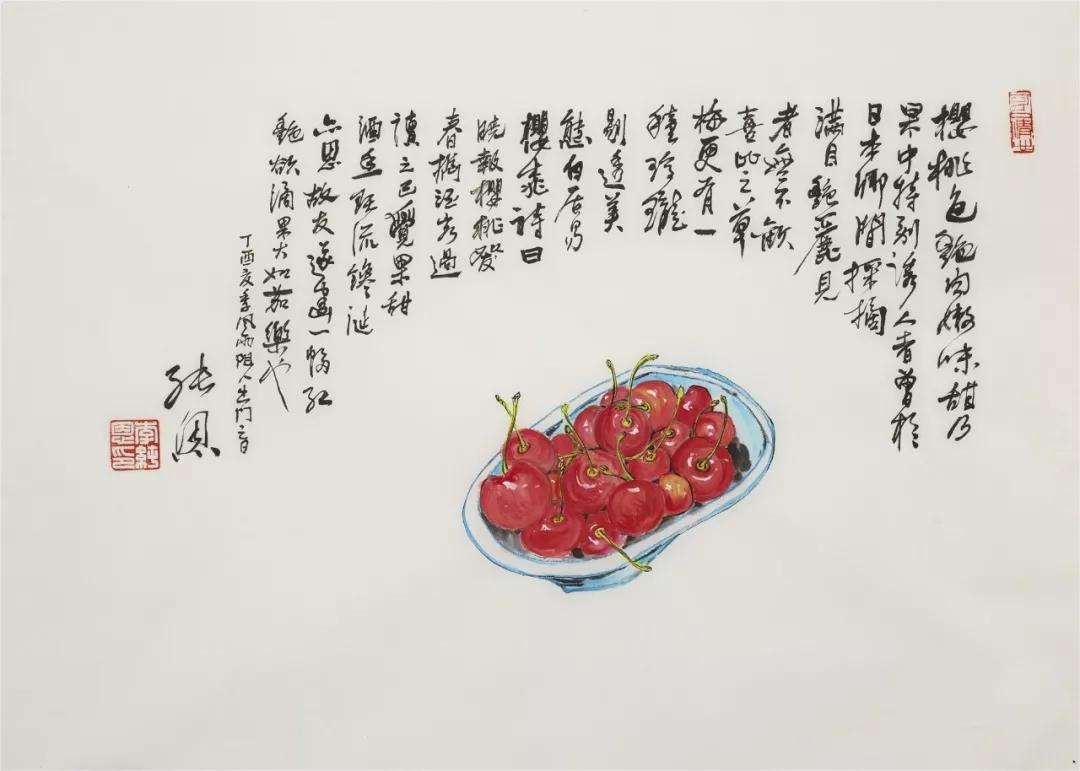 櫻桃色艷肉嫩味甜乃
果中特别诱人者曾於
日本鄉間採摘
满目艷麗見
者無不歡
喜比之草
梅更有一
種玲瓏
剔透美
態白居易
櫻桃詩曰
晓報櫻桃發
春攜酒客過
讀之已覺果甜
酒 流饞涎
亦思故友遂畫一幅紅
艷欲滴果大如茄樂也
丁酉夏季風雨阻人出門之日
純恩
李純恩印